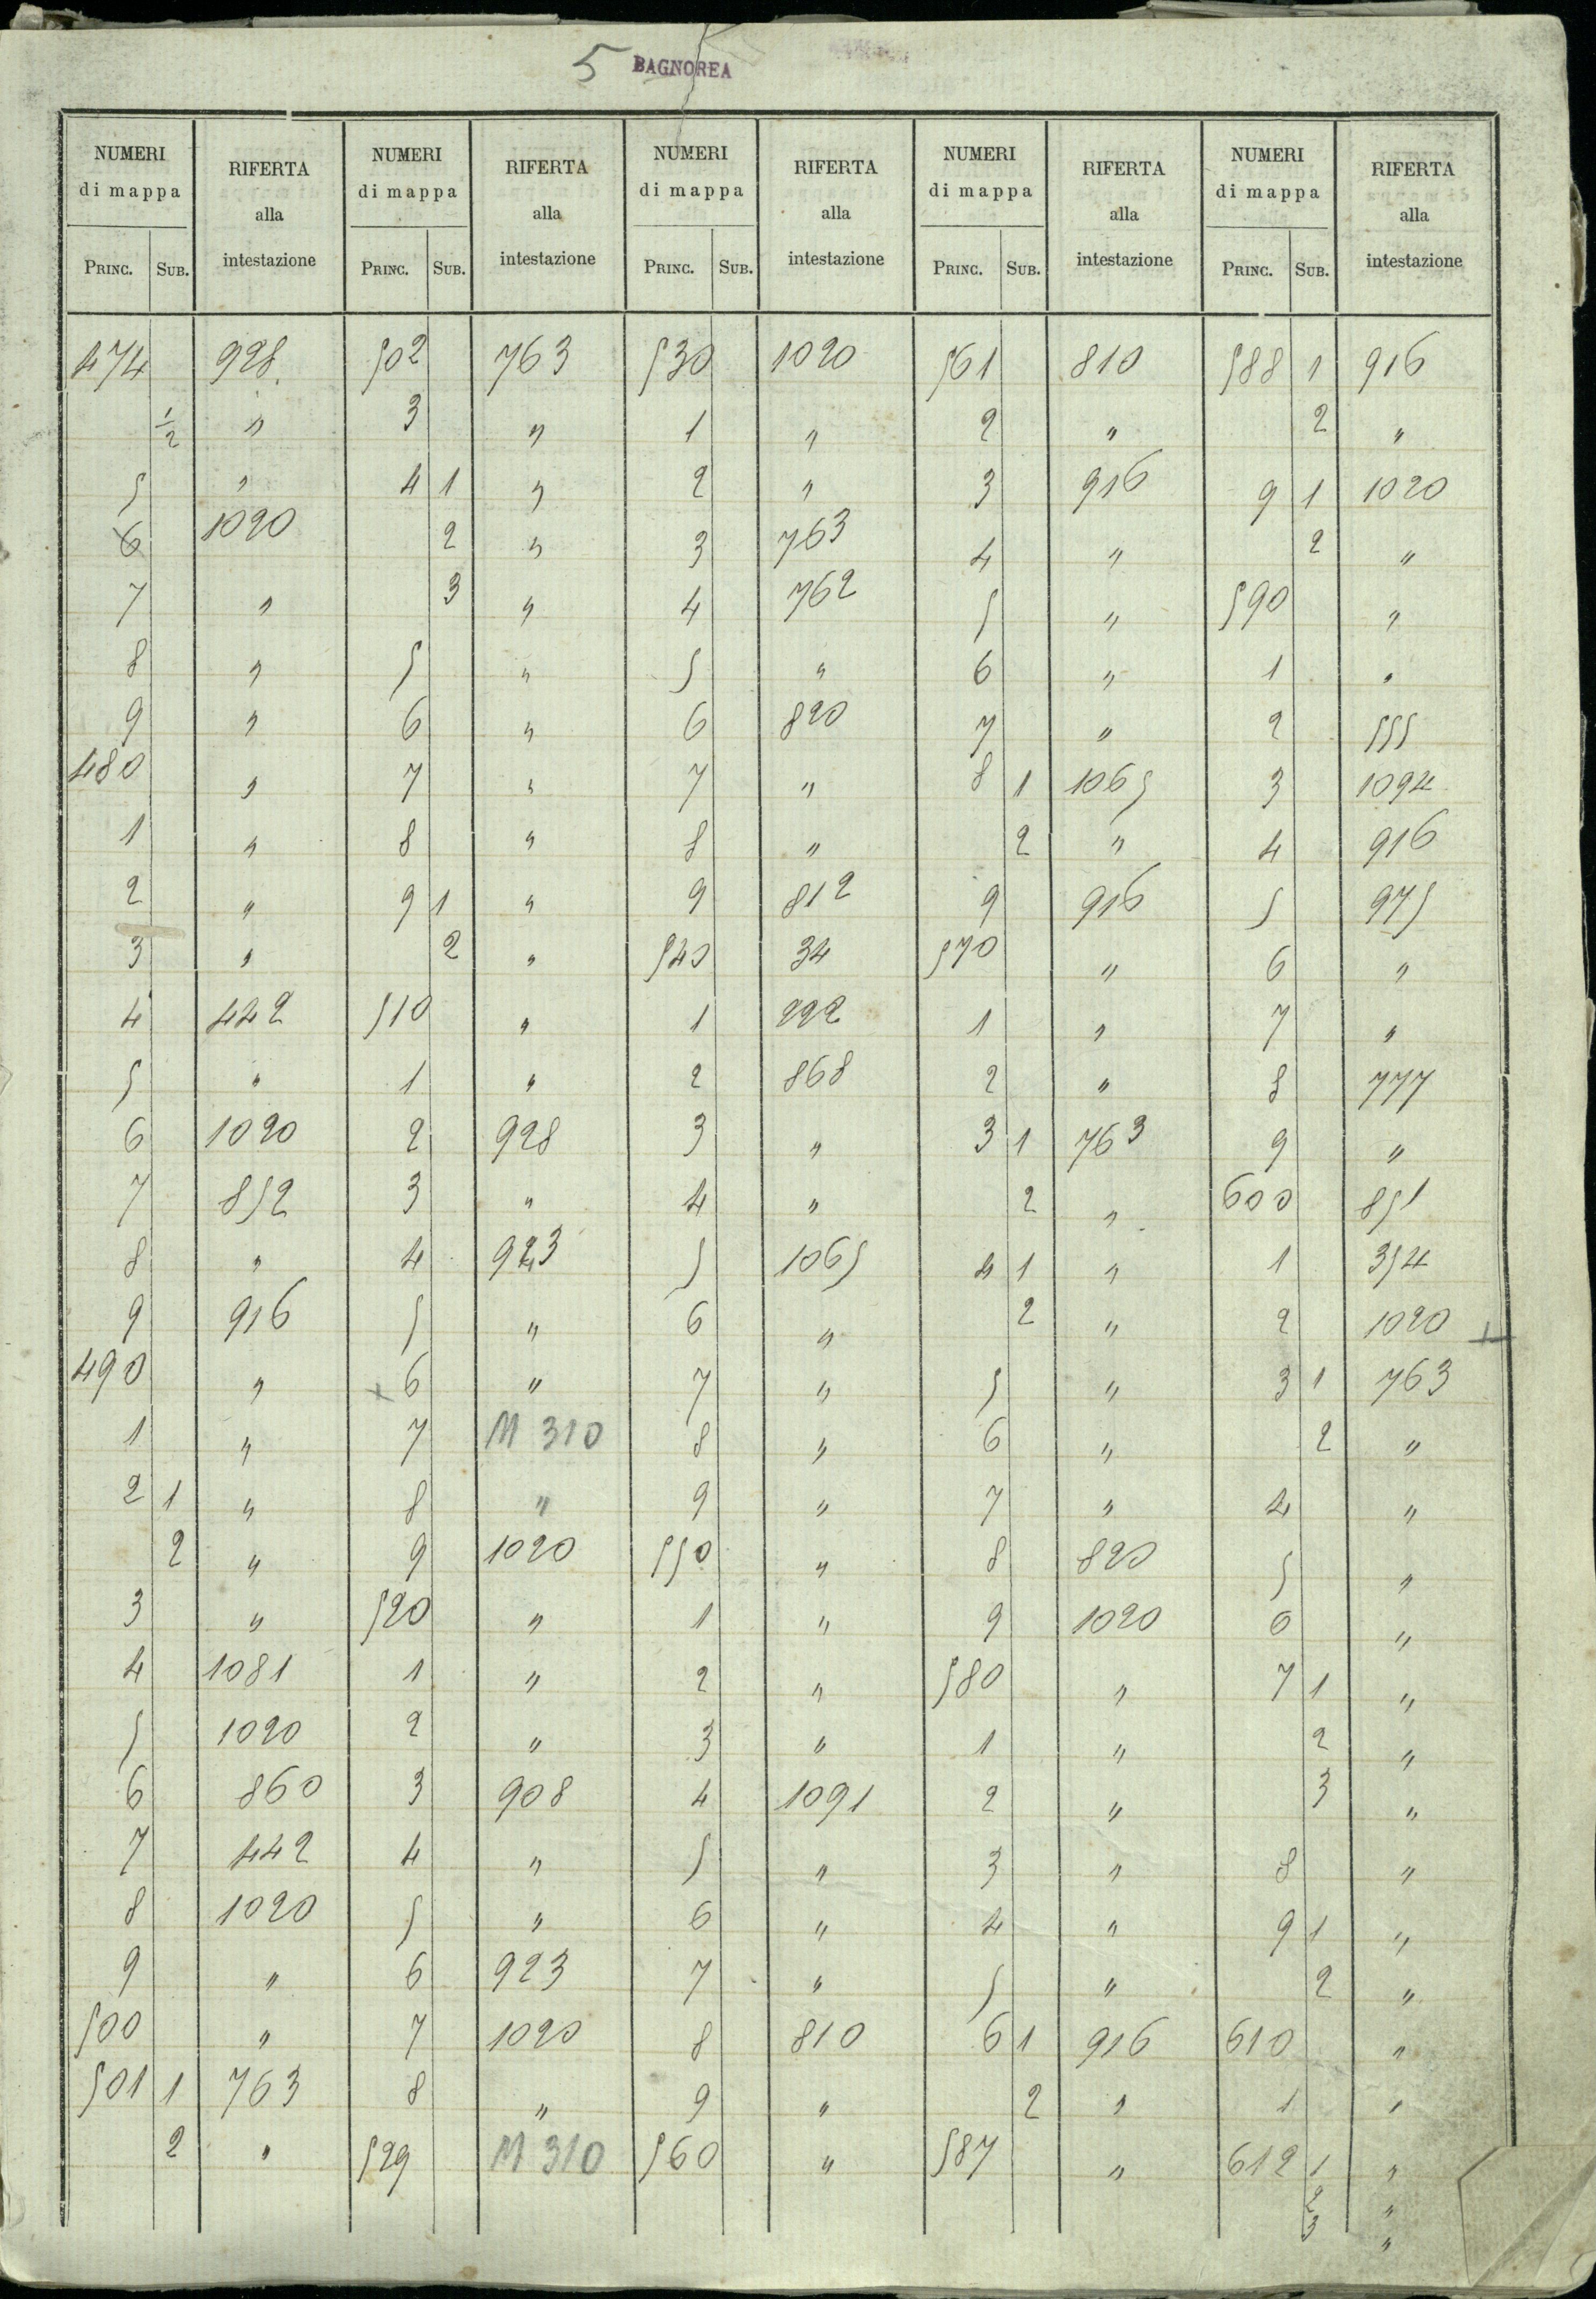 5 BAGNOREA
NUMERI di mappa RIFERTA alla intestazione NUMERI di mappa RIFERTA alla intestazione NUMERI di mappa RIFERTA alla intestazione NUMERI di mappa RIFERTA alla intestazione NUMERI di mappa RIFERTA alla intestazione
PRINC. SUB. PRINC. SUB. PRINC. SUB. PRINC. SUB. PRINC. SUB.
474 928 502 763 530 1020 561 810 588 1 916
1/2 " 3 " 1 " 2 " 2 "
5 " 4 1 " 2 " 3 916 9 1 1020
6 1020 2 " 3 763 4 " 2 "
7 " 3 " 4 762 5 " 590 "
8 " 5 " 5 " 6 " 1 "
9 " 6 " 6 820 7 " 2 555
480 " 7 " 7 " 8 1 1065 3 1094
1 " 8 " 8 " 2 " 4 916
2 " 9 1 " 9 812 9 916 5 975
3 " 2 " 540 34 570 " 6 "
4 442 510 " 1 222 1 " 7 "
5 " 1 " 2 868 2 " 8 777
6 1020 2 928 3 " 3 1 763 9 "
7 852 3 " 4 " 2 " 600 851
8 " 4 923 5 1065 4 1 " 1 354
9 916 5 " 6 " 2 " 2 1020 +
490 " + 6 " 7 " 5 " 3 1 763
1 " 7 M 310 8 " 6 " 2 "
2 1 " 8 " 9 " 7 " 4 "
2 " 9 1020 550 " 8 820 5 "
3 " 520 " 1 " 9 1020 6 "
4 1081 1 " 2 " 580 " 7 1 "
5 1020 2 " 3 " 1 " 2 "
6 860 3 908 4 1091 2 " 3 "
7 442 4 " 5 " 3 " 8 "
8 1020 5 " 6 " 4 " 9 1 "
9 " 6 923 7 " 5 " 2 "
500 " 7 1020 8 810 6 1 916 610 "
501 1 763 8 " 9 " 2 " 1 "
2 " 529 M 310 560 " 587 " 612 1 "
2 "
3 "